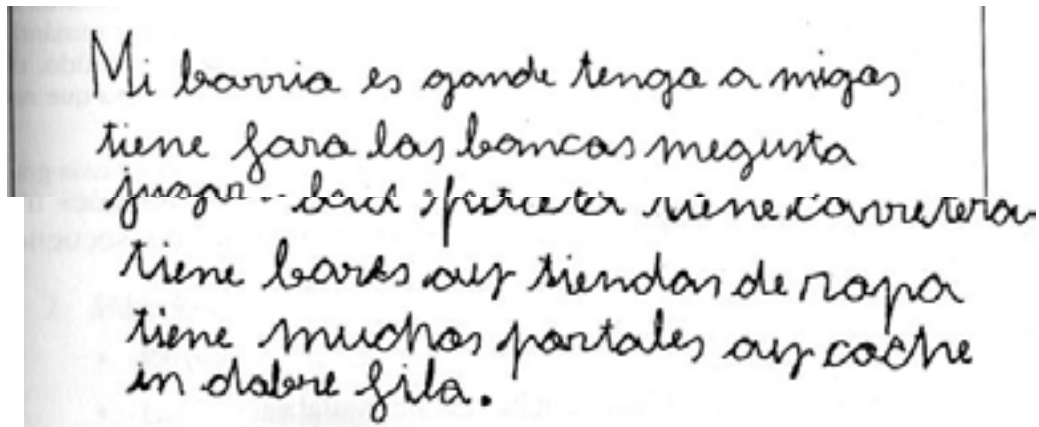 Mi barria es gande tenga a migas
tiene fara las bancas megusta
jugar
tiene carretera
tiene bares auy tiendas de ropa
tiene muchas partales auy coche
in dabre fila.